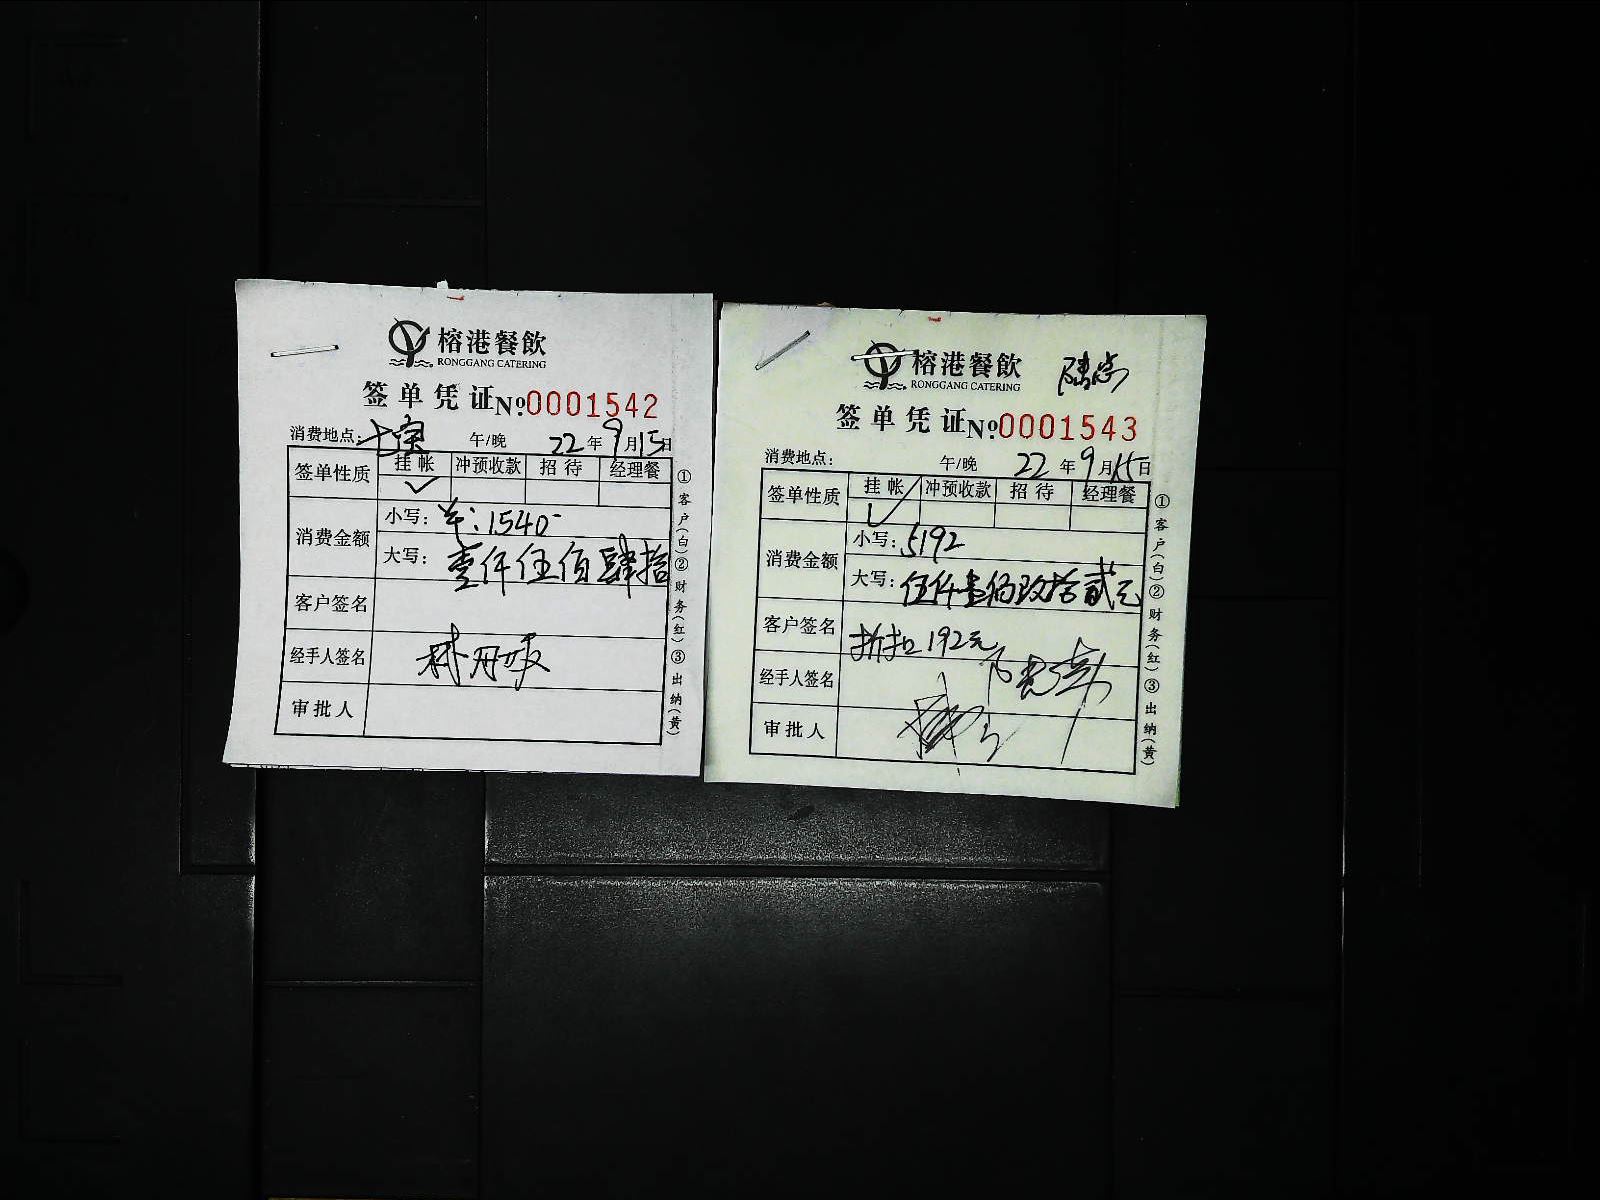 榕港餐飲
RONGGANG CATERING
签单凭证 №0001542
消费地点: 午/晚 22年9月15日
签单性质 挂帐 冲预收款 招待 经理餐
✓
消费金额 小写: 1540-
大写: 壹仟伍佰肆拾
客户签名
经手人签名
审批人
①客户(白)②财务(红)③出纳(黄)
榕港餐飲
RONGGANG CATERING
签单凭证 №0001543
消费地点: 午/晚 22年9月15日
签单性质 挂帐 冲预收款 招待 经理餐
✓
消费金额 小写: 5192
大写: 伍仟壹佰玖拾贰元
客户签名 折扣192元
经手人签名
审批人
①客户(白)②财务(红)③出纳(黄)